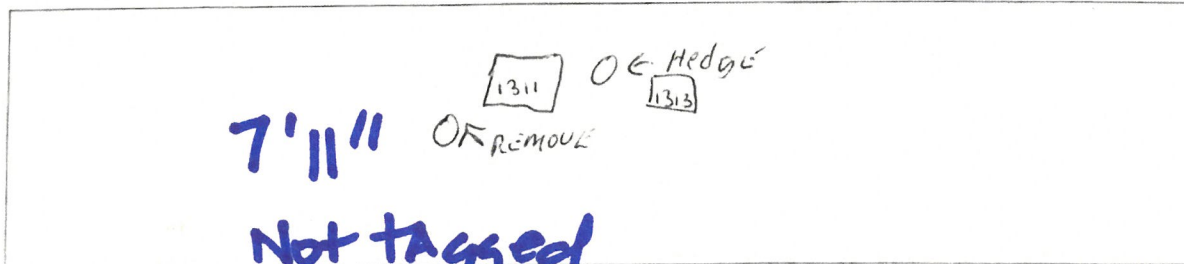 1311 O ← Hedge
1313
7'11" O ↖ REMOVE
Not tAgged